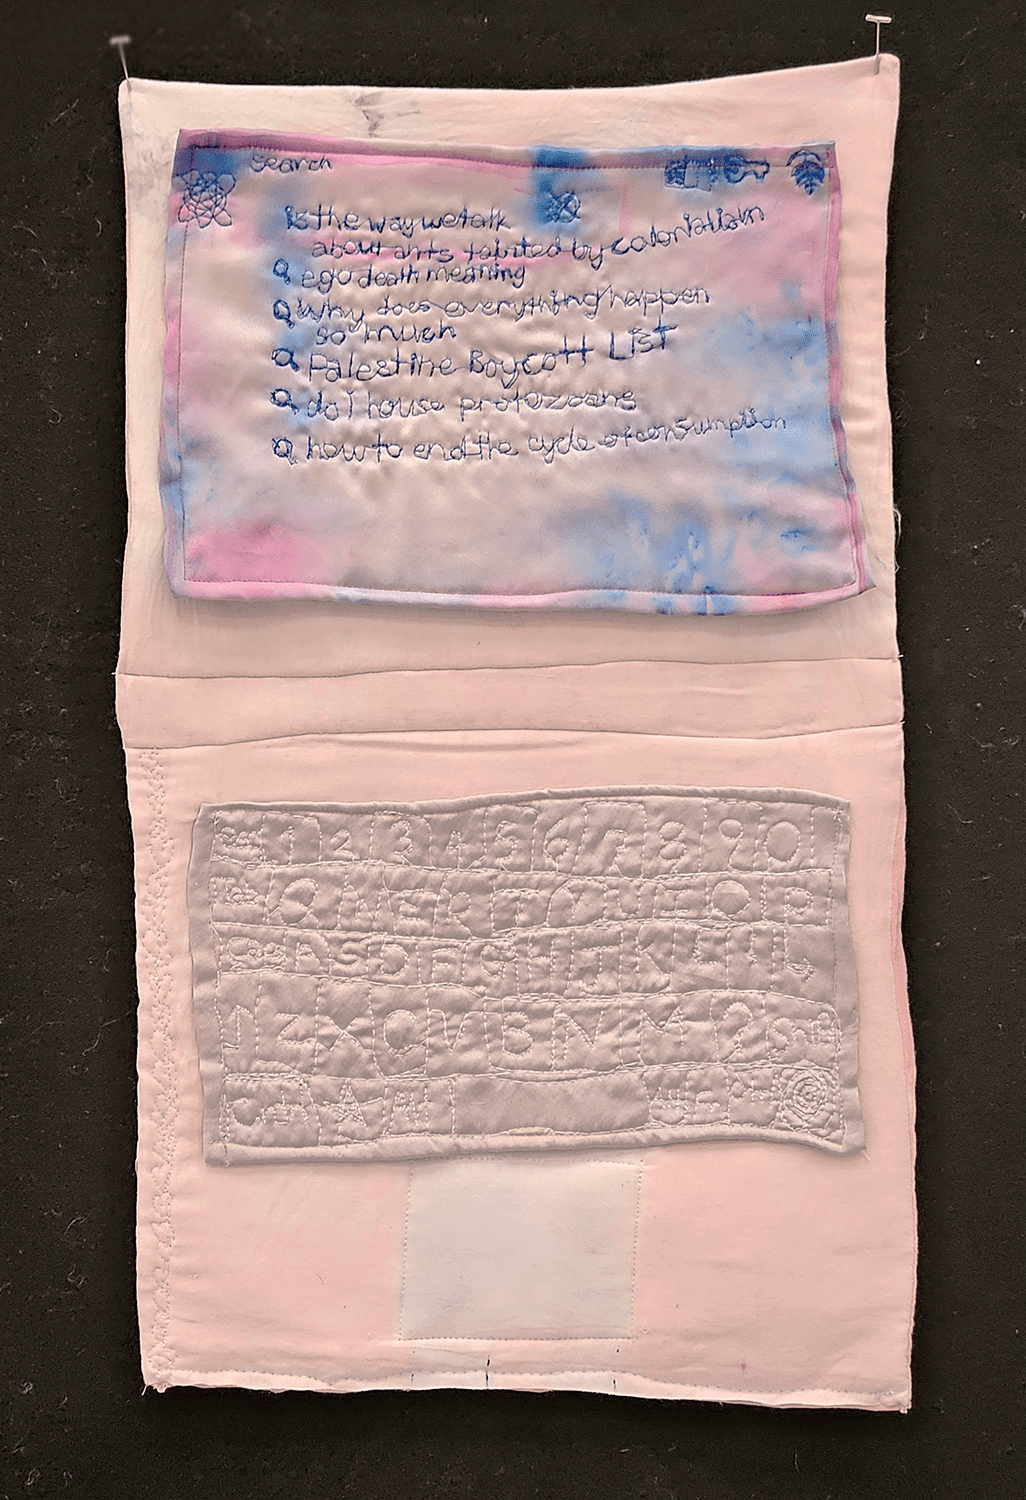 Search
is the way we talk
about arts tainted by colonialism
ego death meaning
Why does everything happen
so much
Palestine Boycott LIST
do I house protozoans
how to end the cycle of consumption
1 2 3 4 5 6 7 8 9 0
Tab Q W E R T Y U I O P
A S D F G H J K L
Z X C V B N M ?